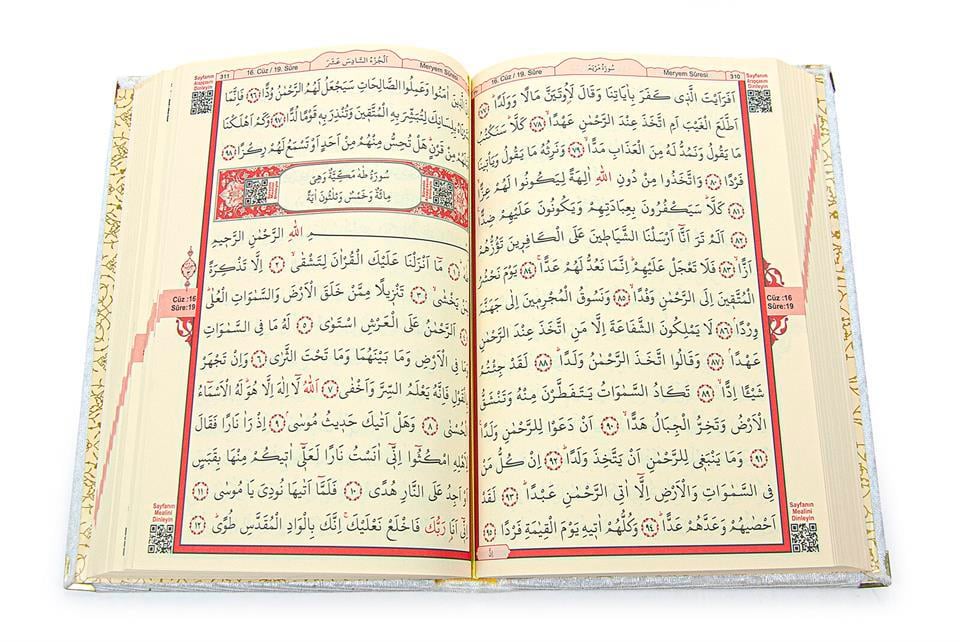 سورة مريم
Meryem Sûresi
16. Cüz / 19. Sûre
310
Sayfanın
Arapçasını
Dinleyin
اَفَرَاَيْتَ الَّذ۪ي كَفَرَ بِاٰيَاتِنَا وَقَالَ لَاُوتَيَنَّ مَالًا وَوَلَدًا ﴿٧٧﴾
اَطَّلَعَ الْغَيْبَ اَمِ اتَّخَذَ عِنْدَ الرَّحْمٰنِ عَهْدًا ﴿٧٨﴾ كَلَّا سَنَكْتُبُ
مَا يَقُولُ وَنَمُدُّ لَهُ مِنَ الْعَذَابِ مَدًّا ﴿٧٩﴾ وَنَرِثُهُ مَا يَقُولُ وَيَأْت۪ينَا
فَرْدًا ﴿٨٠﴾ وَاتَّخَذُوا مِنْ دُونِ اللّٰهِ اٰلِهَةً لِيَكُونُوا لَهُمْ عِزًّا
﴿٨١﴾ كَلَّا سَيَكْفُرُونَ بِعِبَادَتِهِمْ وَيَكُونُونَ عَلَيْهِمْ ضِدًّا
﴿٨٢﴾ اَلَمْ تَرَ اَنَّٓا اَرْسَلْنَا الشَّيَاط۪ينَ عَلَى الْكَافِر۪ينَ تَؤُزُّهُمْ
اَزًّا ﴿٨٣﴾ فَلَا تَعْجَلْ عَلَيْهِمْ اِنَّمَا نَعُدُّ لَهُمْ عَدًّا ﴿٨٤﴾ يَوْمَ نَحْشُرُ
الْمُتَّق۪ينَ اِلَى الرَّحْمٰنِ وَفْدًا ﴿٨٥﴾ وَنَسُوقُ الْمُجْرِم۪ينَ اِلٰى جَهَنَّمَ
وِرْدًا ﴿٨٦﴾ لَا يَمْلِكُونَ الشَّفَاعَةَ اِلَّا مَنِ اتَّخَذَ عِنْدَ الرَّحْمٰنِ
عَهْدًا ﴿٨٧﴾ وَقَالُوا اتَّخَذَ الرَّحْمٰنُ وَلَدًا ﴿٨٨﴾ لَقَدْ جِئْتُمْ
شَيْـًٔا اِدًّا ﴿٨٩﴾ تَكَادُ السَّمٰوَاتُ يَتَفَطَّرْنَ مِنْهُ وَتَنْشَقُّ
الْاَرْضُ وَتَخِرُّ الْجِبَالُ هَدًّا ﴿٩٠﴾ اَنْ دَعَوْا لِلرَّحْمٰنِ وَلَدًا
﴿٩١﴾ وَمَا يَنْبَغ۪ي لِلرَّحْمٰنِ اَنْ يَتَّخِذَ وَلَدًا ﴿٩٢﴾ اِنْ كُلُّ مَنْ
فِي السَّمٰوَاتِ وَالْاَرْضِ اِلَّٓا اٰتِي الرَّحْمٰنِ عَبْدًا ﴿٩٣﴾ لَقَدْ
اَحْصٰيهُمْ وَعَدَّهُمْ عَدًّا ﴿٩٤﴾ وَكُلُّهُمْ اٰت۪يهِ يَوْمَ الْقِيٰمَةِ فَرْدًا ﴿٩٥﴾
اِنَّ
Cüz :16
Sûre:19
Sayfanın
Mealini
Dinleyin
اَلْجُزْءُ السَّادِسَ عَشَرَ
Meryem Sûresi
16. Cüz / 19. Sûre
311
Sayfanın
Arapçasını
Dinleyin
الَّذ۪ينَ اٰمَنُوا وَعَمِلُوا الصَّالِحَاتِ سَيَجْعَلُ لَهُمُ الرَّحْمٰنُ وُدًّا ﴿٩٦﴾ فَاِنَّمَا
يَسَّرْنَاهُ بِلِسَانِكَ لِتُبَشِّرَ بِهِ الْمُتَّق۪ينَ وَتُنْذِرَ بِه۪ قَوْمًا لُدًّا ﴿٩٧﴾ وَكَمْ اَهْلَكْنَا
قَبْلَهُمْ مِنْ قَرْنٍ هَلْ تُحِسُّ مِنْهُمْ مِنْ اَحَدٍ اَوْ تَسْمَعُ لَهُمْ رِكْزًا ﴿٩٨﴾
سُورَةُ طٰهٰ مَكِّيَّةٌ وَهِيَ
مِائَةٌ وَخَمْسٌ وَثَلٰثُونَ اٰيَةً
بِسْمِ اللّٰهِ الرَّحْمٰنِ الرَّح۪يمِ
طٰهٰ ﴿١﴾ مَٓا اَنْزَلْنَا عَلَيْكَ الْقُرْاٰنَ لِتَشْقٰى ﴿٢﴾ اِلَّا تَذْكِرَةً
لِمَنْ يَخْشٰى ﴿٣﴾ تَنْز۪يلًا مِمَّنْ خَلَقَ الْاَرْضَ وَالسَّمٰوَاتِ الْعُلٰى
﴿٤﴾ اَلرَّحْمٰنُ عَلَى الْعَرْشِ اسْتَوٰى ﴿٥﴾ لَهُ مَا فِي السَّمٰوَاتِ
وَمَا فِي الْاَرْضِ وَمَا بَيْنَهُمَا وَمَا تَحْتَ الثَّرٰى ﴿٦﴾ وَاِنْ تَجْهَرْ
بِالْقَوْلِ فَاِنَّهُ يَعْلَمُ السِّرَّ وَاَخْفٰى ﴿٧﴾ اَللّٰهُ لَٓا اِلٰهَ اِلَّا هُوَ لَهُ الْاَسْمَٓاءُ
الْحُسْنٰى ﴿٨﴾ وَهَلْ اَتٰيكَ حَد۪يثُ مُوسٰى ﴿٩﴾ اِذْ رَاٰ نَارًا فَقَالَ
لِاَهْلِهِ امْكُثُٓوا اِنّ۪ٓي اٰنَسْتُ نَارًا لَعَلّ۪ٓي اٰت۪يكُمْ مِنْهَا بِقَبَسٍ
اَوْ اَجِدُ عَلَى النَّارِ هُدًى ﴿١٠﴾ فَلَمَّٓا اَتٰيهَا نُودِيَ يَا مُوسٰى ﴿١١﴾
اِنّ۪ٓي اَنَا رَبُّكَ فَاخْلَعْ نَعْلَيْكَ اِنَّكَ بِالْوَادِ الْمُقَدَّسِ طُوًى ﴿١٢﴾
Cüz :16
Sûre:19
Sayfanın
Mealini
Dinleyin